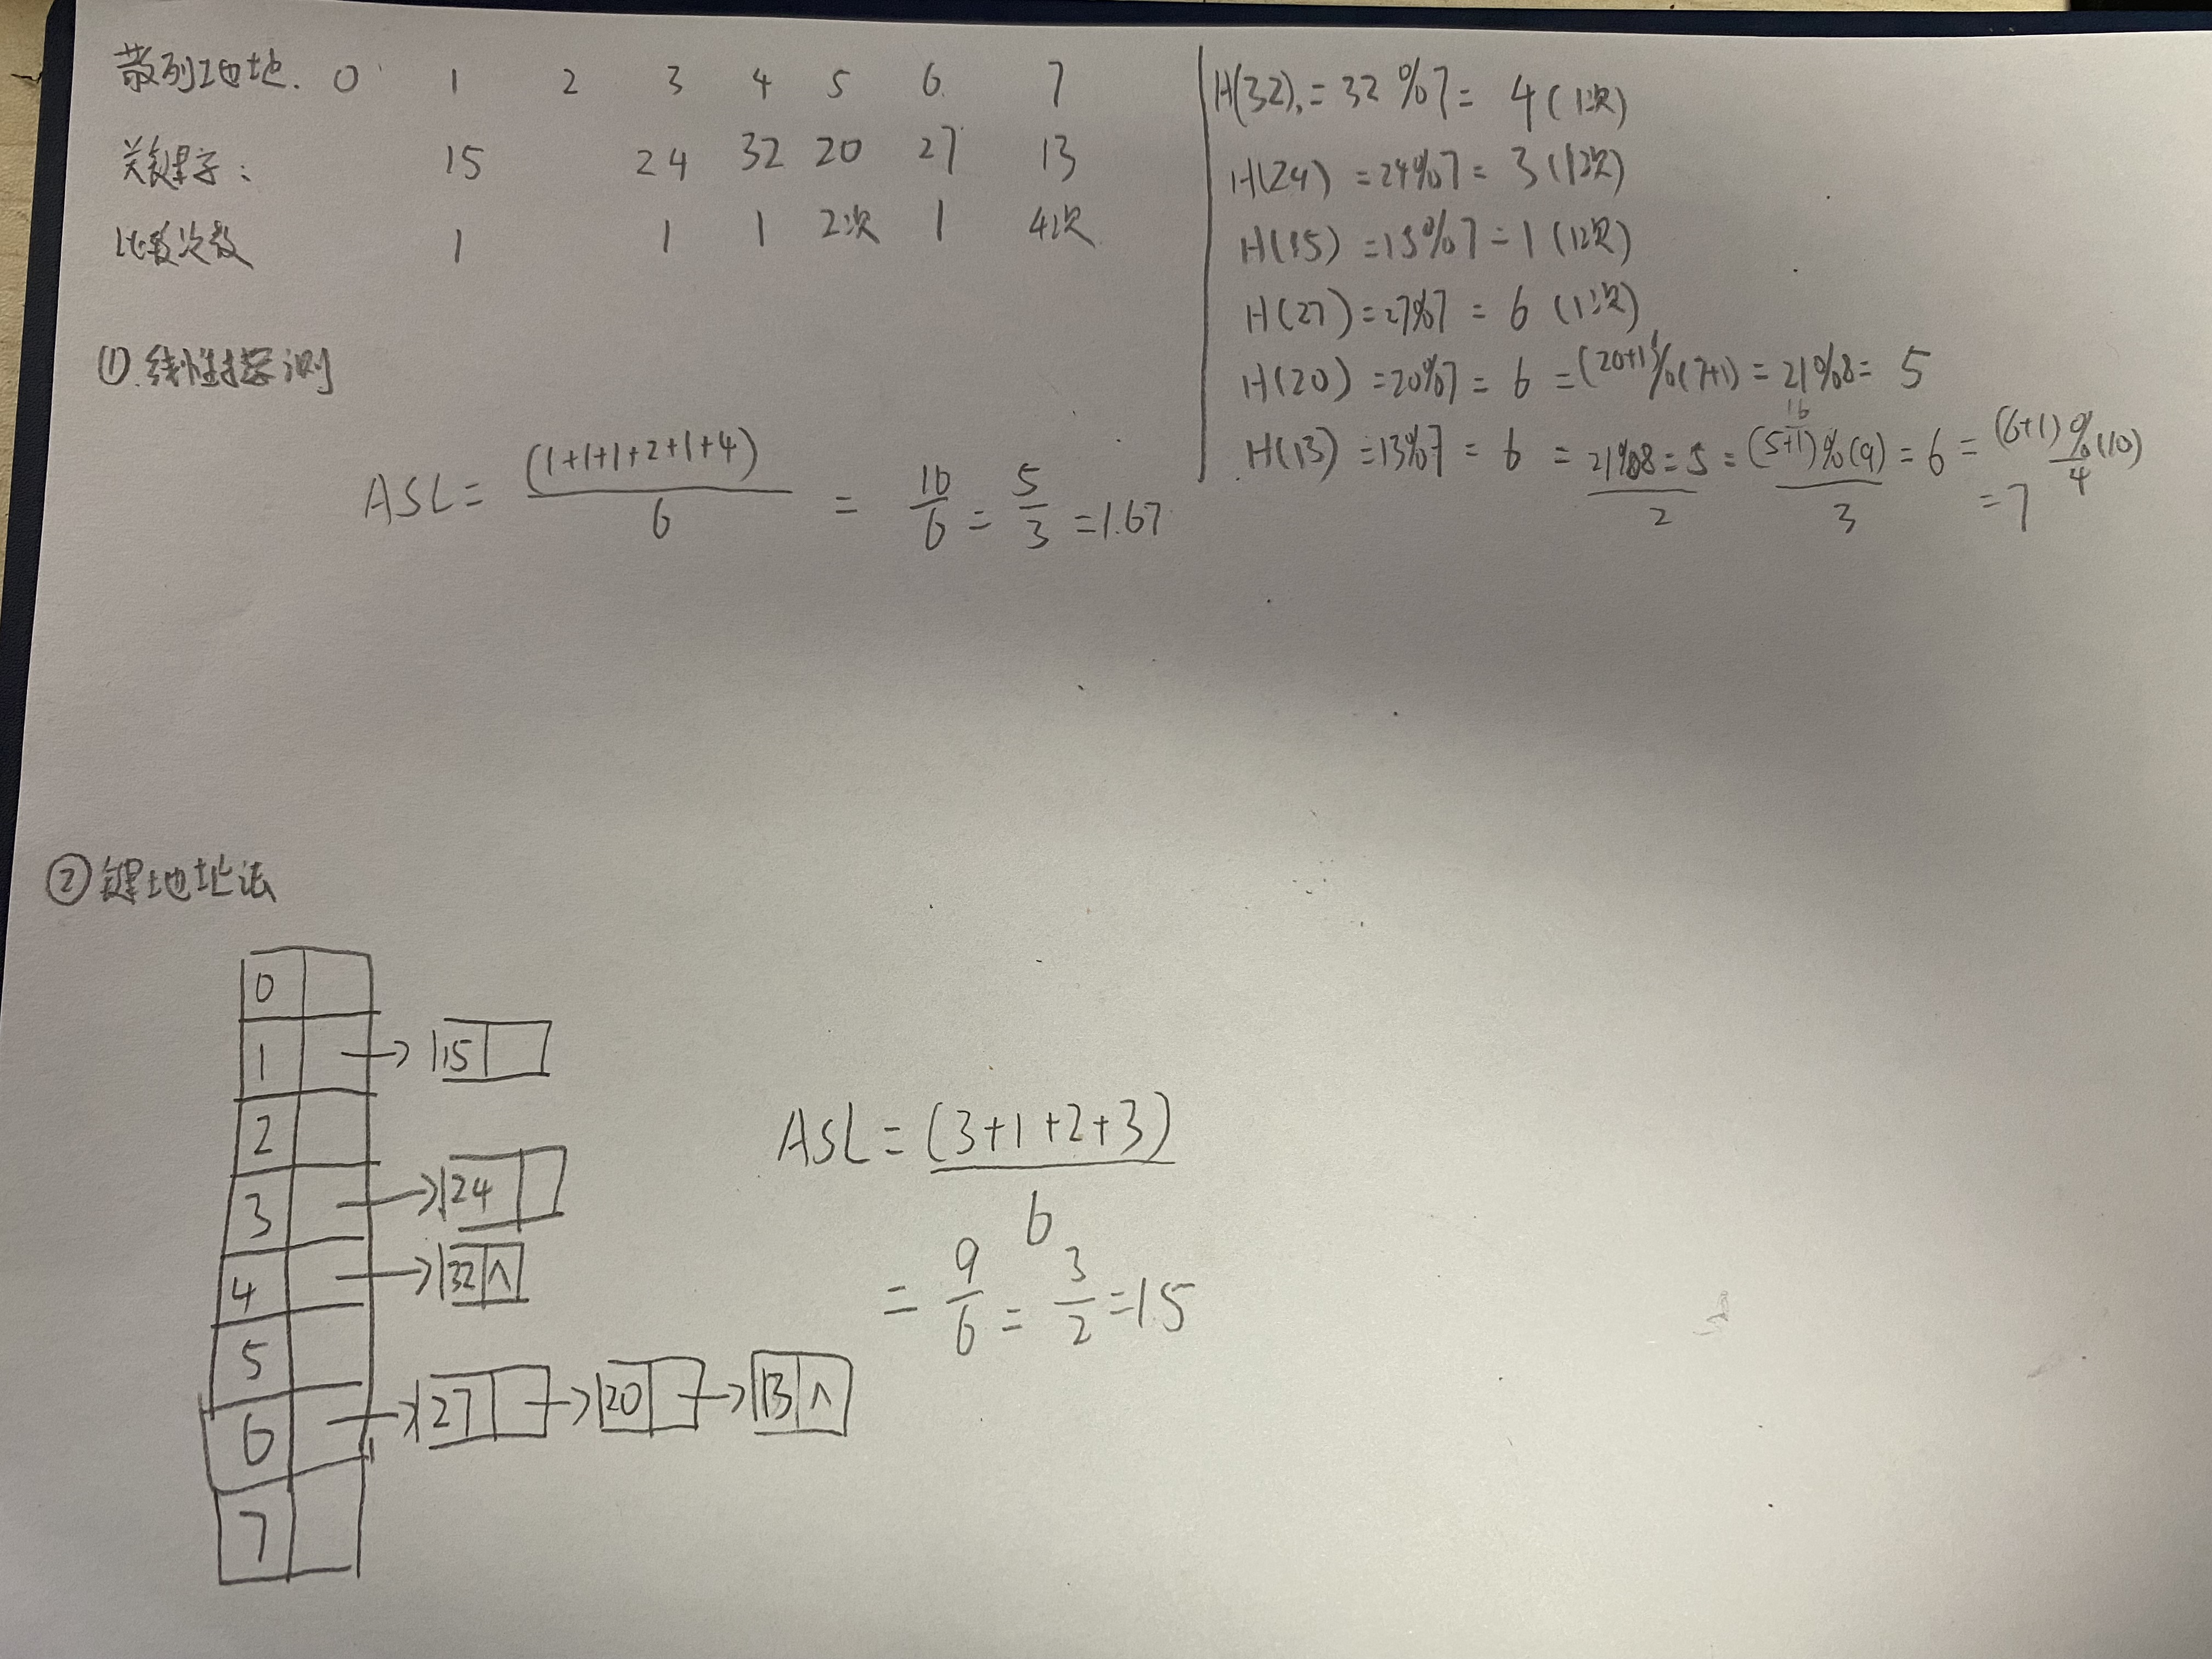 散列地址. 0 1 2 3 4 5 6 7
关键字: 15 24 32 20 27 13
比较次数 1 1 1 2次 1 4次
H(32) = 32%7 = 4 (1次)
H(24) = 24%7 = 3 (1次)
H(15) = 15%7 = 1 (1次)
H(27) = 27%7 = 6 (1次)
H(20) = 20%7 = 6 = (20+1)%(7+1) = 21%8 = 5
H(13) = 13%7 = 6 = 21%8 = 5 = (5+1)%(9) = 6 = (6+1)%(10)
2 3 4
= 7
(1). 线性探测
ASL = (1+1+1+2+1+4) / 6 = 10/6 = 5/3 = 1.67
② 链地址法
0
1 → 15
2
3 → 24
4 → 32 ∧
5
6 → 27 → 20 → 13 ∧
7
ASL = (3+1+2+3) / 6
= 9/6 = 3/2 = 1.5